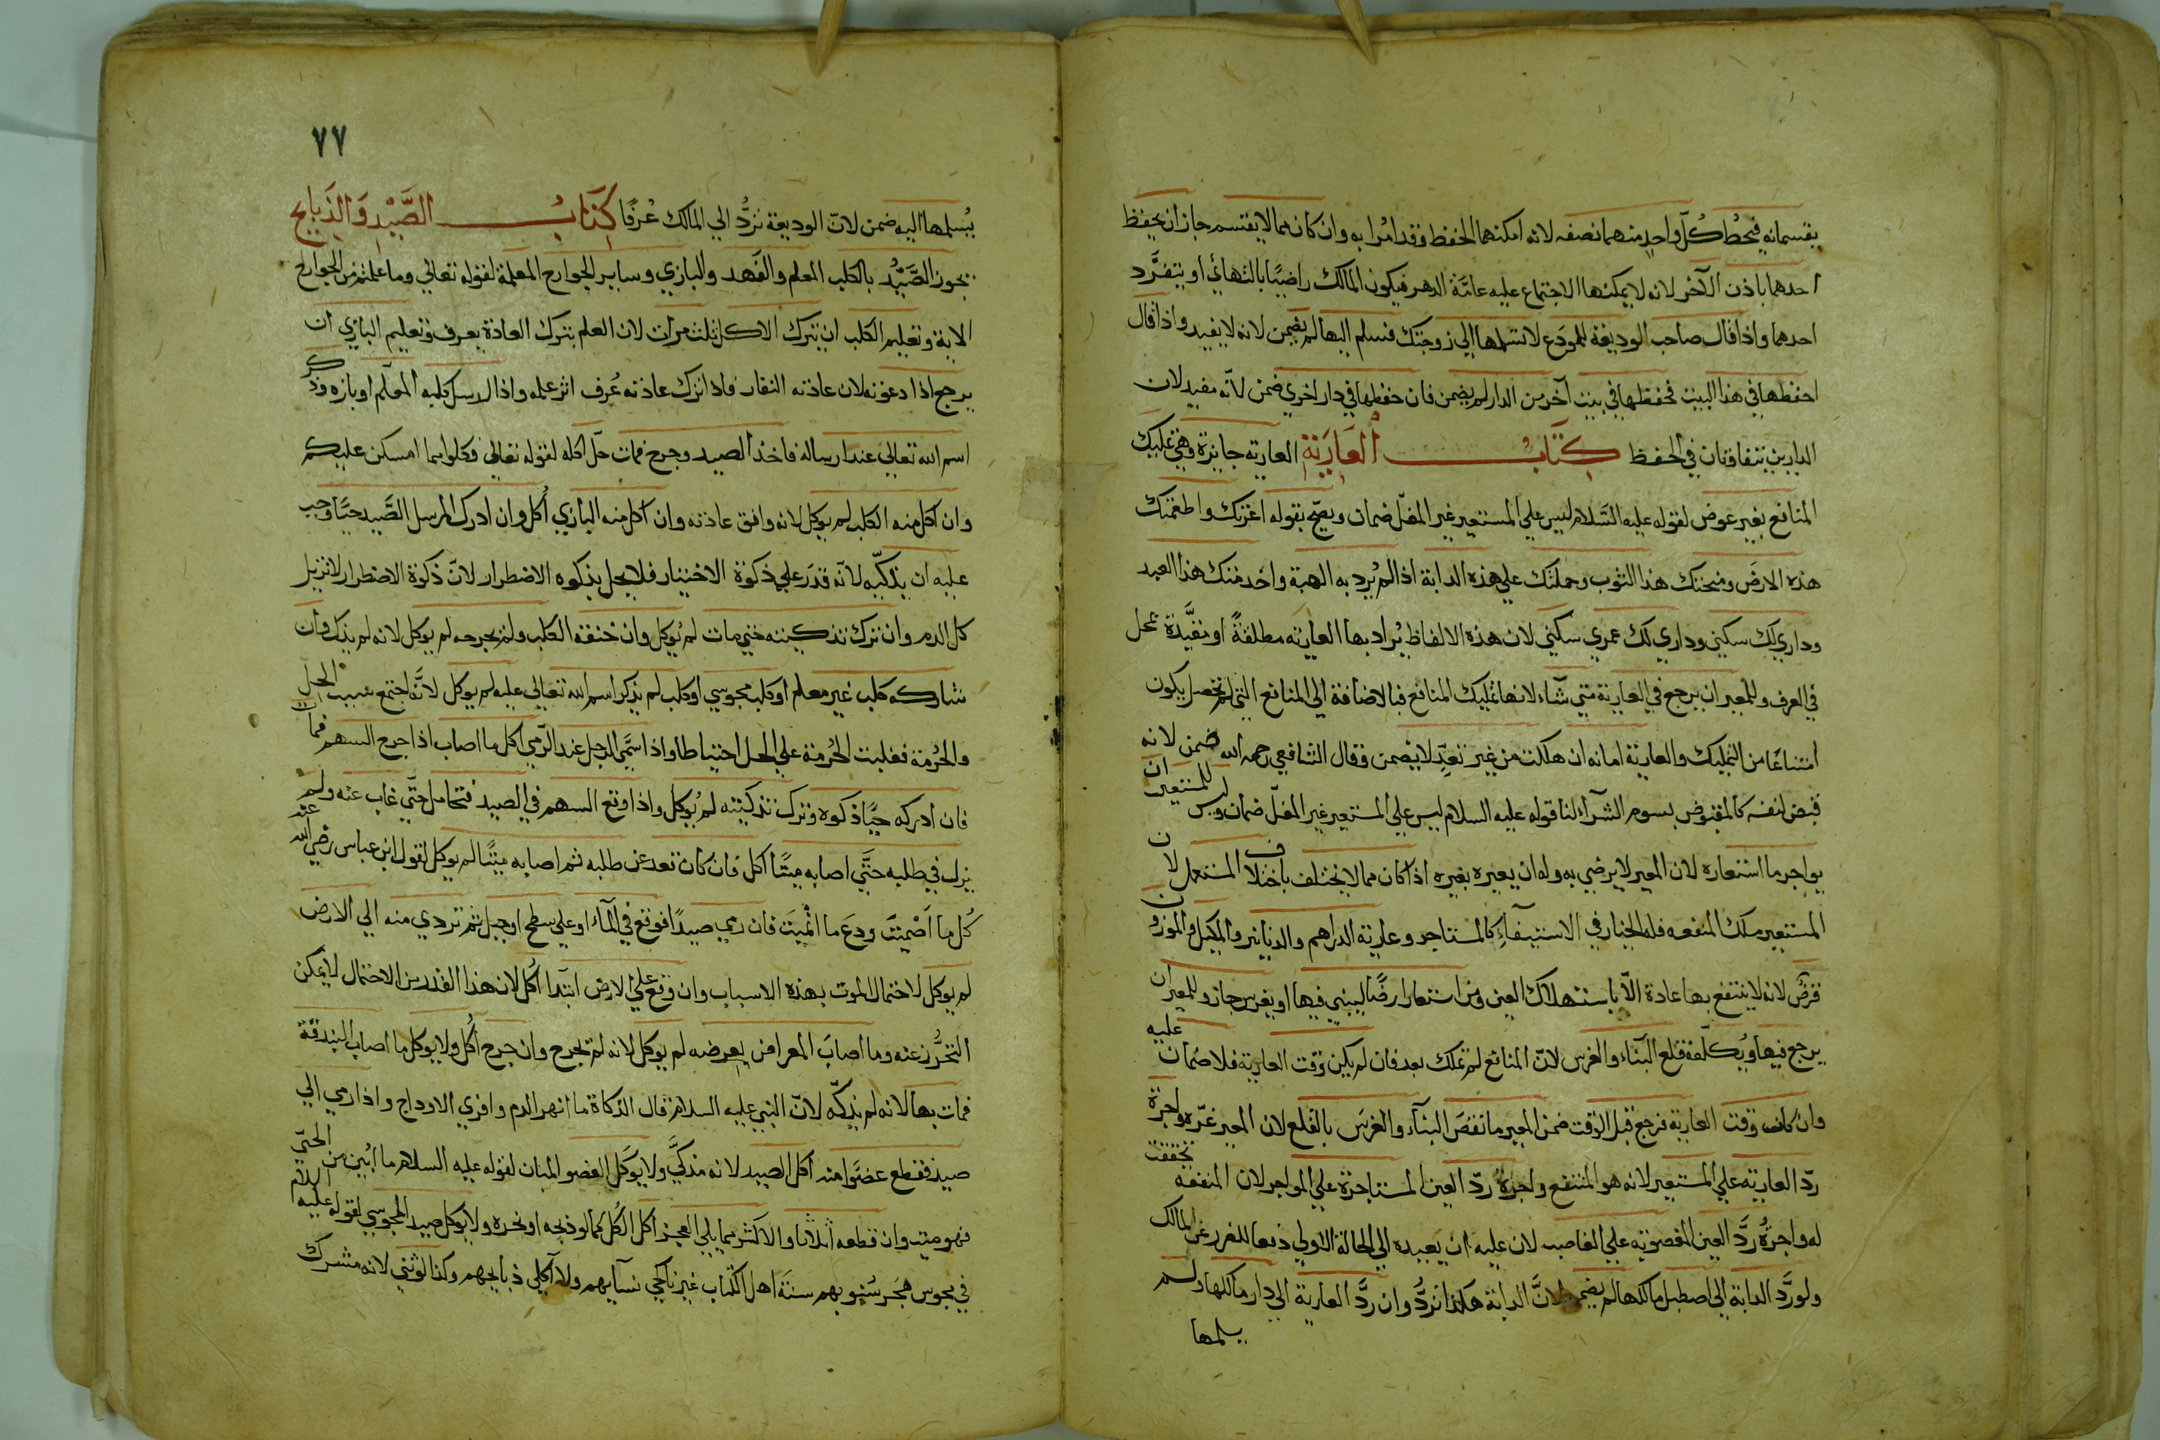 يقتسمانه فيحفظ كل واحد منهما نصفه لانه امكنهما الحفظ وقد امرا به وان كان مما لا يقتسم جاز ان يحفظ
احدهما باذن الآخر لانه لا يمكنهما الاجتماع عليه عامّة الدهر فيكون المالك راضيًا بالتهائي او يتفرّد
احدهما واذا قال صاحب الوديعة للمودَع لا تسلمها الي زوجتك فسلم اليها لم يضمن لانه لا يفيد واذا قال
احفظها في هذا البيت فحفظها في بيت آخر من الدار لم يضمن فان حفظها في دار اخري ضمن لانّه مفيد لان
الدارين تتفاوتان في الحفظ كتاب العارية العارية جايزة وهي تمليك
المنافع بغير عوض لقوله عليه السّلام ليس علي المستعير غير المغلّ ضمان ويصحّ بقوله اعرتك واطعمتك
هذه الارض ومنحتك هذا الثوب وحملتك علي هذه الدابة اذا لم يُرد به الهبة واخدمتك هذا العبد
وداري لك سكني وداري لك عمري سكني لان هذه الالفاظ يُراد بها العاريَة مطلقةً او مقيَّدة تحمل
في العرف وللمعير ان يرجع في العارية متي شآء لانها تمليك المنافع فبالاضافة الي المنافع التي لم تحصل يكون
امتناعًا من التمليك والعارية امانه ان هلكت من غير تعدٍّ لا يضمن وقال الشافعي رحمه الله ضمن لانه
قبض لنفسه كالمقبوض بسوم الشرآء لنا قوله عليه السلام ليس علي المستعير غير المغلّ ضمان وليس للمستعير ان
يواجر ما استعاره لان المعير لا يرضي به وله ان يعيره بغيره اذا كان مما لا يختلف باختلاف المستعمل لان
المستعير ملك المنفعه فله الخيار في الاستيفآءِ كالمستاجر وعارية الدراهم والدنانير والمكيل والموزون
قرضٌ لانه لا ينتفع بها عادة الاّ باستهلاك العين ومن استعار ارضًا ليبني فيها او يغرس جاز وللمعير ان
يرجع فيها ويُكلّفه قلع البنآء والغرس لانّ المنافع لم تملك بعد فان لم يكن وقت العارية فلا ضمان عليه
وان كانت وقت العارية فرجع قبل الوقت ضمن المعير ما نقصَ البنآء والغرسَ بالقلع لان المعير غرّه واجرة
ردّ العارية علي المستعير لانه هو المنتفع واجرة ردّ العين المستاجرة علي المواجر لان المنفعه تحققت
له واجرةُ ردَّ العين المغصوبة علي الغاصب لان عليه ان يعيده الي الحالة الاولي دفعا للضرر عن المالك
ولو ردَّ الدابة الي اصطبل مالكها لم يضمن لانَّ الدابة هكذا تردُّ وان ردَّ العارية الي دار مالكها ولم
يسلمها
٧٧
يُسلمها اليه ضمن لانّ الوديعة تردُّ الي المالك عُرفًا كتاب الصَّيْدِ وَالذبايح
يجوز الصَّيْدُ بالكلب المعلم والفَهد والبازي وساير الجوارح المعلمة لقوله تعالي وما علمتم من الجوارح
الاية وتعليم الكلب ان يترك الاكل ثلث مرات لان العلم بترك العادة يعرف وتعليم البازي ان
يرجع اذا دعوته لان عادته النفار فاذا ترك عادته عُرف اثر علمه واذا ارسل كلبه المعلّم او بازه وذكر
اسم الله تعالي عند ارساله فاخذ الصيد وجرح فمات حلّ اكله لقوله تعالي وكلوا مما امسكن عليكم
وان اكل منه الكلب لم يوكل لانه وافق عادته وان اكل منه البازي اُكل وان ادرك المرسل الصَّيد حيًّا وجب
عليه ان يذكّيه لانّه قدَر علي ذكوة الاختيار فلا يحل بذكوه الاضطرار لانّ ذكوة الاضطرار لا تزيل
كل الدم وان ترك تذكيته حتي مات لم يُوكل وان خنقه الكلب ولم يجرحه لم يوكل لانه لم يذك وان
شاركه كلب غير معلم او كلب مجوسي او كلب لم يذكر اسم الله تعالي عليه لم يوكل لانَّه اجتمع سبب الحل
والحُرمة فغلبت الحُرمة علي الحل احتياطا واذا سَمّي الرجل عند الرّمي اكل ما اصاب اذا جرح السهم فمات
فان ادركه حيًّا ذكوه وترك تذكيته لم يُوكل واذا وقع السهم في الصيد فتحامل حتّي غاب عنه ولم
يزل في طلبه حتَّي اصابه ميتًا اكل فان كان قعد عن طلبه ثم اصابه ميّتًا لم يوكل لقول ابن عباس رضي الله عنه
كُل ما اَصْميْتَ ودَع ما انْميَت فان رمي صيدًا فوقع في المآء او علي سطح او جبل ثم تردي منه الي الارض
لم يوكل لاحتمال الموت بهذه الاسباب وان وقع علي الارض ابتدا اُكل لان هذا القدر من الاحتمال لا يمكن
التحرُّز عنه وما اصابَ المعراض بعرضه لم يوكل لانه لم يجرح وان جرح اُكل ولا يوكل ما اصاب البندقة
فمات بها لانه لم يذكّه لانّ النبي عليه السلام قال الذكاة ما انهر الدم وافري الاوداج واذا رمي الي
صيد فقطع عضوًا منه اُكل الصيد لانه مذكيًّ ولا يوكل العضو المبان لقوله عليه السلام ما اُبين من الحيّ
فهو ميت وان قطعه اثلاثا والاكثر مما يلي العجز اكل الكُل كما لو ذبحه او نحره ولا يوكل صيد المجوسي لقوله عليه السلام
في مجوس هَجَر سُنّو بهم سنّةَ اهل الكتاب غير ناكحي نسآيهم ولا آكلي ذبايحهم وكذا الوثني لانه مشرك